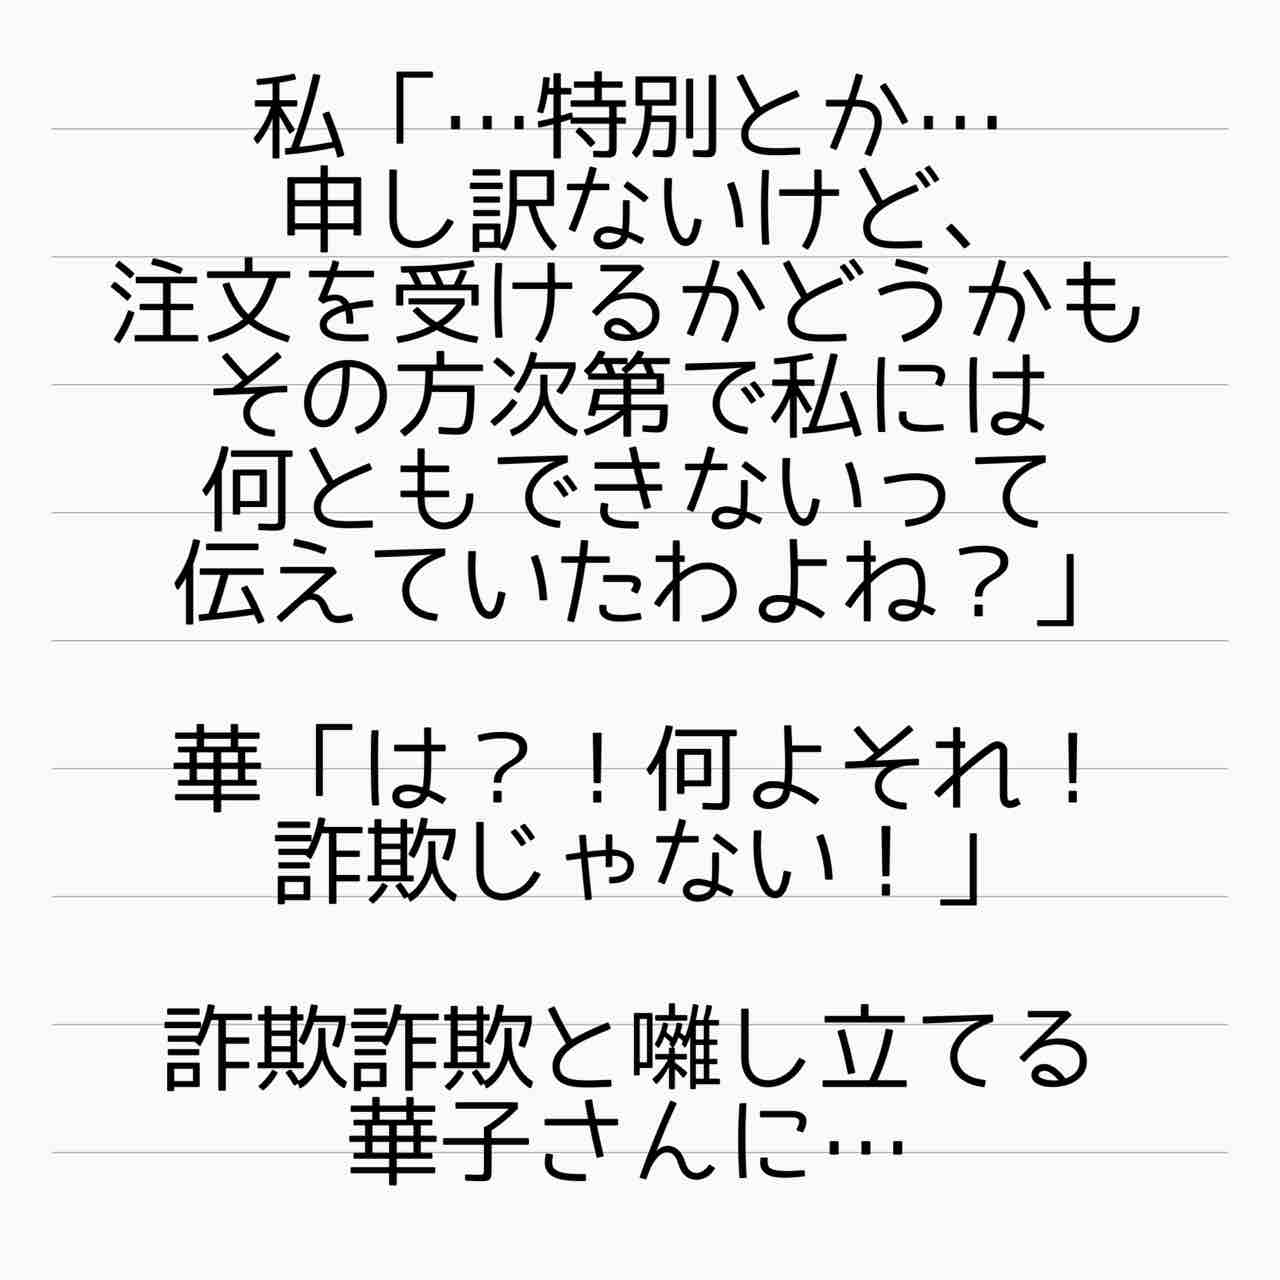 私「…特別とか…
申し訳ないけど、
注文を受けるかどうかも
その方次第で私には
何ともできないって
伝えていたわよね？」
華「は？！何よそれ！
詐欺じゃない！」
詐欺詐欺と囃し立てる
華子さんに…